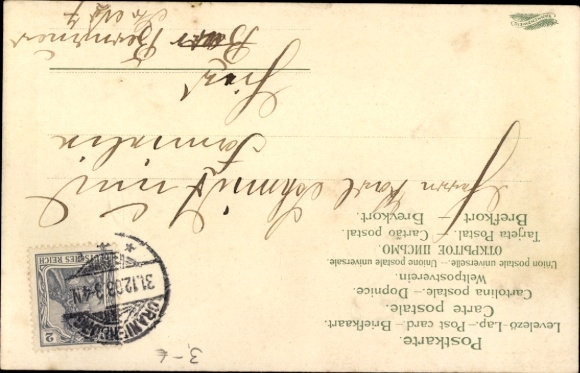 Postkarte.
Levelező-Lap.–Post card.–Briefkaart.
Carte postale.
Cartolina postale.–Dopnice.
Weltpostverein.
Union postale universelle.–Unione postale universale.
ОТКРЫТОЕ ПИСЬМО.
Tarjeta Postal.–Cartão postal.
Brefkort.–Brevkort.
2
DEUTSCHES REICH
31.12.03.3-4N.
Herrn Karl Schmidt und
Familie
Hier
3,-